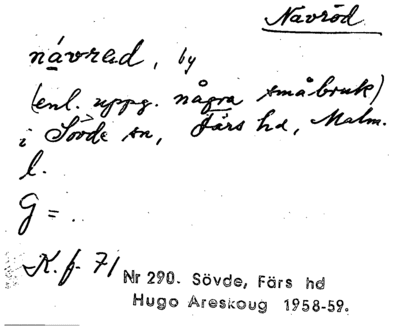 Navröd
návrad, by
(enl. uppg. några småbruk)
i Sövde sn, Färs hd, Malm.
l.
G = .
K. f. 71
Nr 290. Sövde, Färs hd
Hugo Areskoug 1958-59.